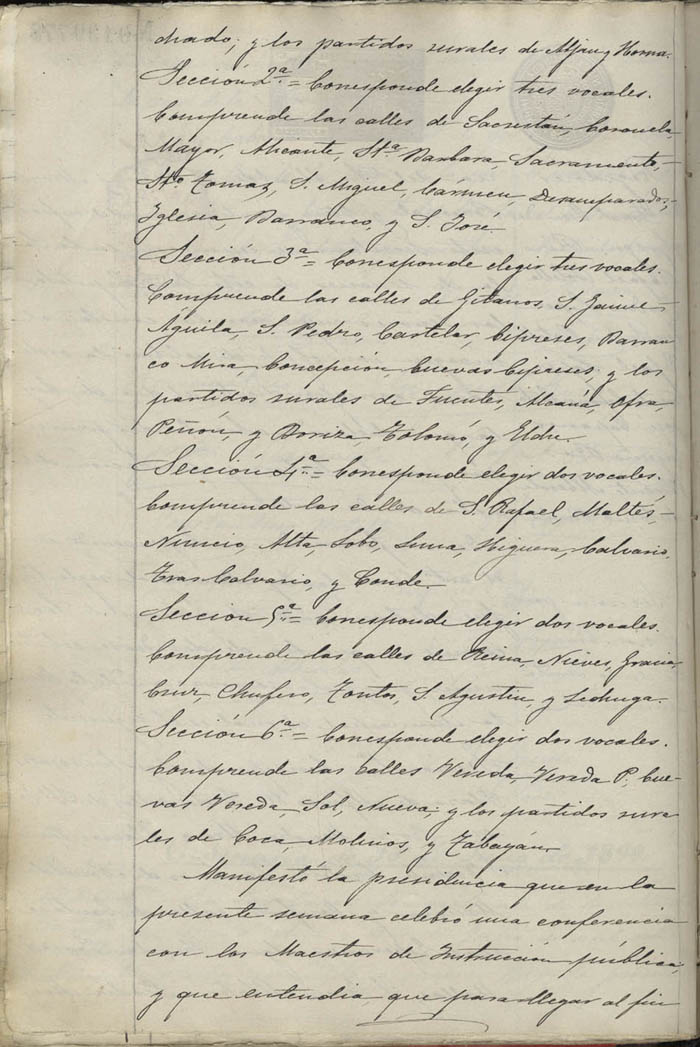 chado; y los partidos rurales de Aljau y Horna.
Sección 2ª = Corresponde elegir tres vocales.
Comprende las calles de Sacristán, Coronela
Mayor, Alicante, Stª Barbara, Sacramento,
Stº Tomas, S. Miguel, Cármen, Desamparados,
Iglesia, Barranco, y S. José.
Sección 3ª = Corresponde elegir tres vocales.
Comprende las calles de Gitanos, S. Jaime
Aguila, S. Pedro, Castelar, Cipreses, Barran
co Mira, Concepción, Cuevas Cipreses; y los
partidos rurales de Fuentes, Alcaná, Ofra,
Peñón, y Borisa, Tolomó, y Elche.
Sección 4ª = Corresponde elegir dos vocales.
Comprende las calles de S. Rafael, Maltés,
Nuncio, Alta, Lobo, Luna, Higuera, Calvario,
Tras Calvario, y Conde.
Sección 5ª = Corresponde elegir dos vocales.
Comprende las calles de Reina, Nieves, Gracia,
Cruz, Chufero, Tontos, S. Agustin, y Lechuga.
Sección 6ª = Corresponde elegir dos vocales.
Comprende las calles Vereda, Vereda P., Cue-
vas Vereda, Sol, Nueva; y los partidos rura
les de Coca, Molinos, y Tabayán.
Manifestó la presidencia que en la
presente semana celebró una conferencia
con los Maestros de Instrucción pública,
y que entendia que para llegar al fin